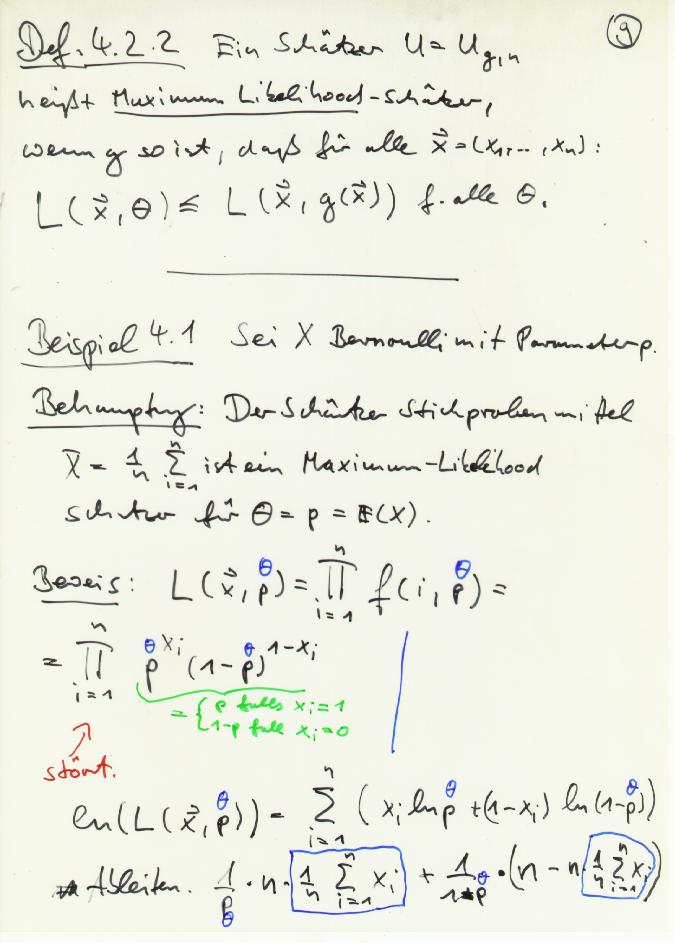 9
Def. 4.2.2 Ein Schätzer U = U_{g,n}
heißt Maximum Likelihood-Schätzer,
wenn g so ist, daß für alle x⃗ = (x₁, ..., xₙ) :
L(x⃗, θ) ≤ L(x⃗, g(x⃗)) f. alle θ.
Beispiel 4.1 Sei X Bernoulli mit Parameter p.
Behauptung: Der Schätzer Stichprobenmittel
X̄ = 1/n ∑_{i=1}^{n} ist ein Maximum-Likelihood
schätzer für θ = p = E(X).
Beweis: L(x⃗, p^θ) = ∏_{i=1}^{n} f(i, p^θ) =
= ∏_{i=1}^{n} p^θ ^{x_i} (1-p^θ)^{1-x_i}
= { p falls x_i = 1
1-p fall x_i = 0
stört.
ln(L(x⃗, p^θ)) = ∑_{i=1}^{n} (x_i ln p^θ + (1-x_i) ln(1-p^θ))
Ableiten. 1/p θ · n · 1/n ∑_{i=1}^{n} x_i + 1/(1-p^θ) · (n - n · 1/n ∑_{i=1}^{n} x_i)